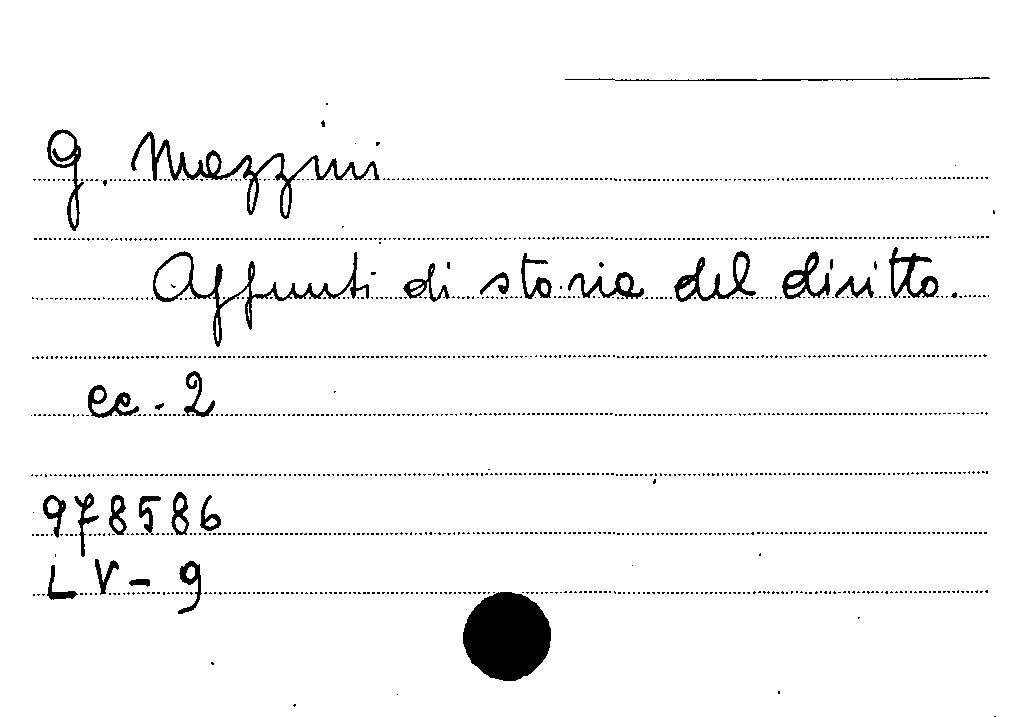 G. Mazzini
Appunti di storia del diritto.
cc. 2
978586
LV-9